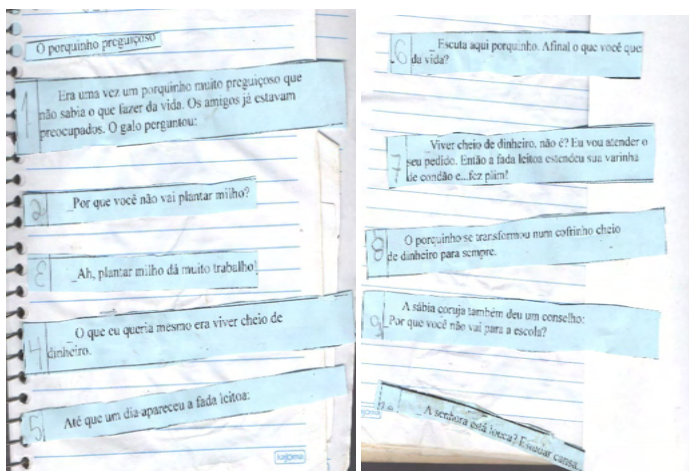 O porquinho preguiçoso
1
Era uma vez um porquinho muito preguiçoso que
não sabia o que fazer da vida. Os amigos já estavam
preocupados. O galo perguntou:
2
_Por que você não vai plantar milho?
3
_Ah, plantar milho dá muito trabalho!
4
_O que eu queria mesmo era viver cheio de
dinheiro.
5
Até que um dia apareceu a fada leitoa:
6
_Escuta aqui porquinho. Afinal o que você quer
da vida?
7
_Viver cheio de dinheiro, não é? Eu vou atender o
seu pedido. Então a fada leitoa estendeu sua varinha
de condão e...fez plim!
8
O porquinho se transformou num cofrinho cheio
de dinheiro para sempre.
9
A sábia coruja também deu um conselho:
_Por que você não vai para a escola?
_A senhora está louca? Estudar cansa